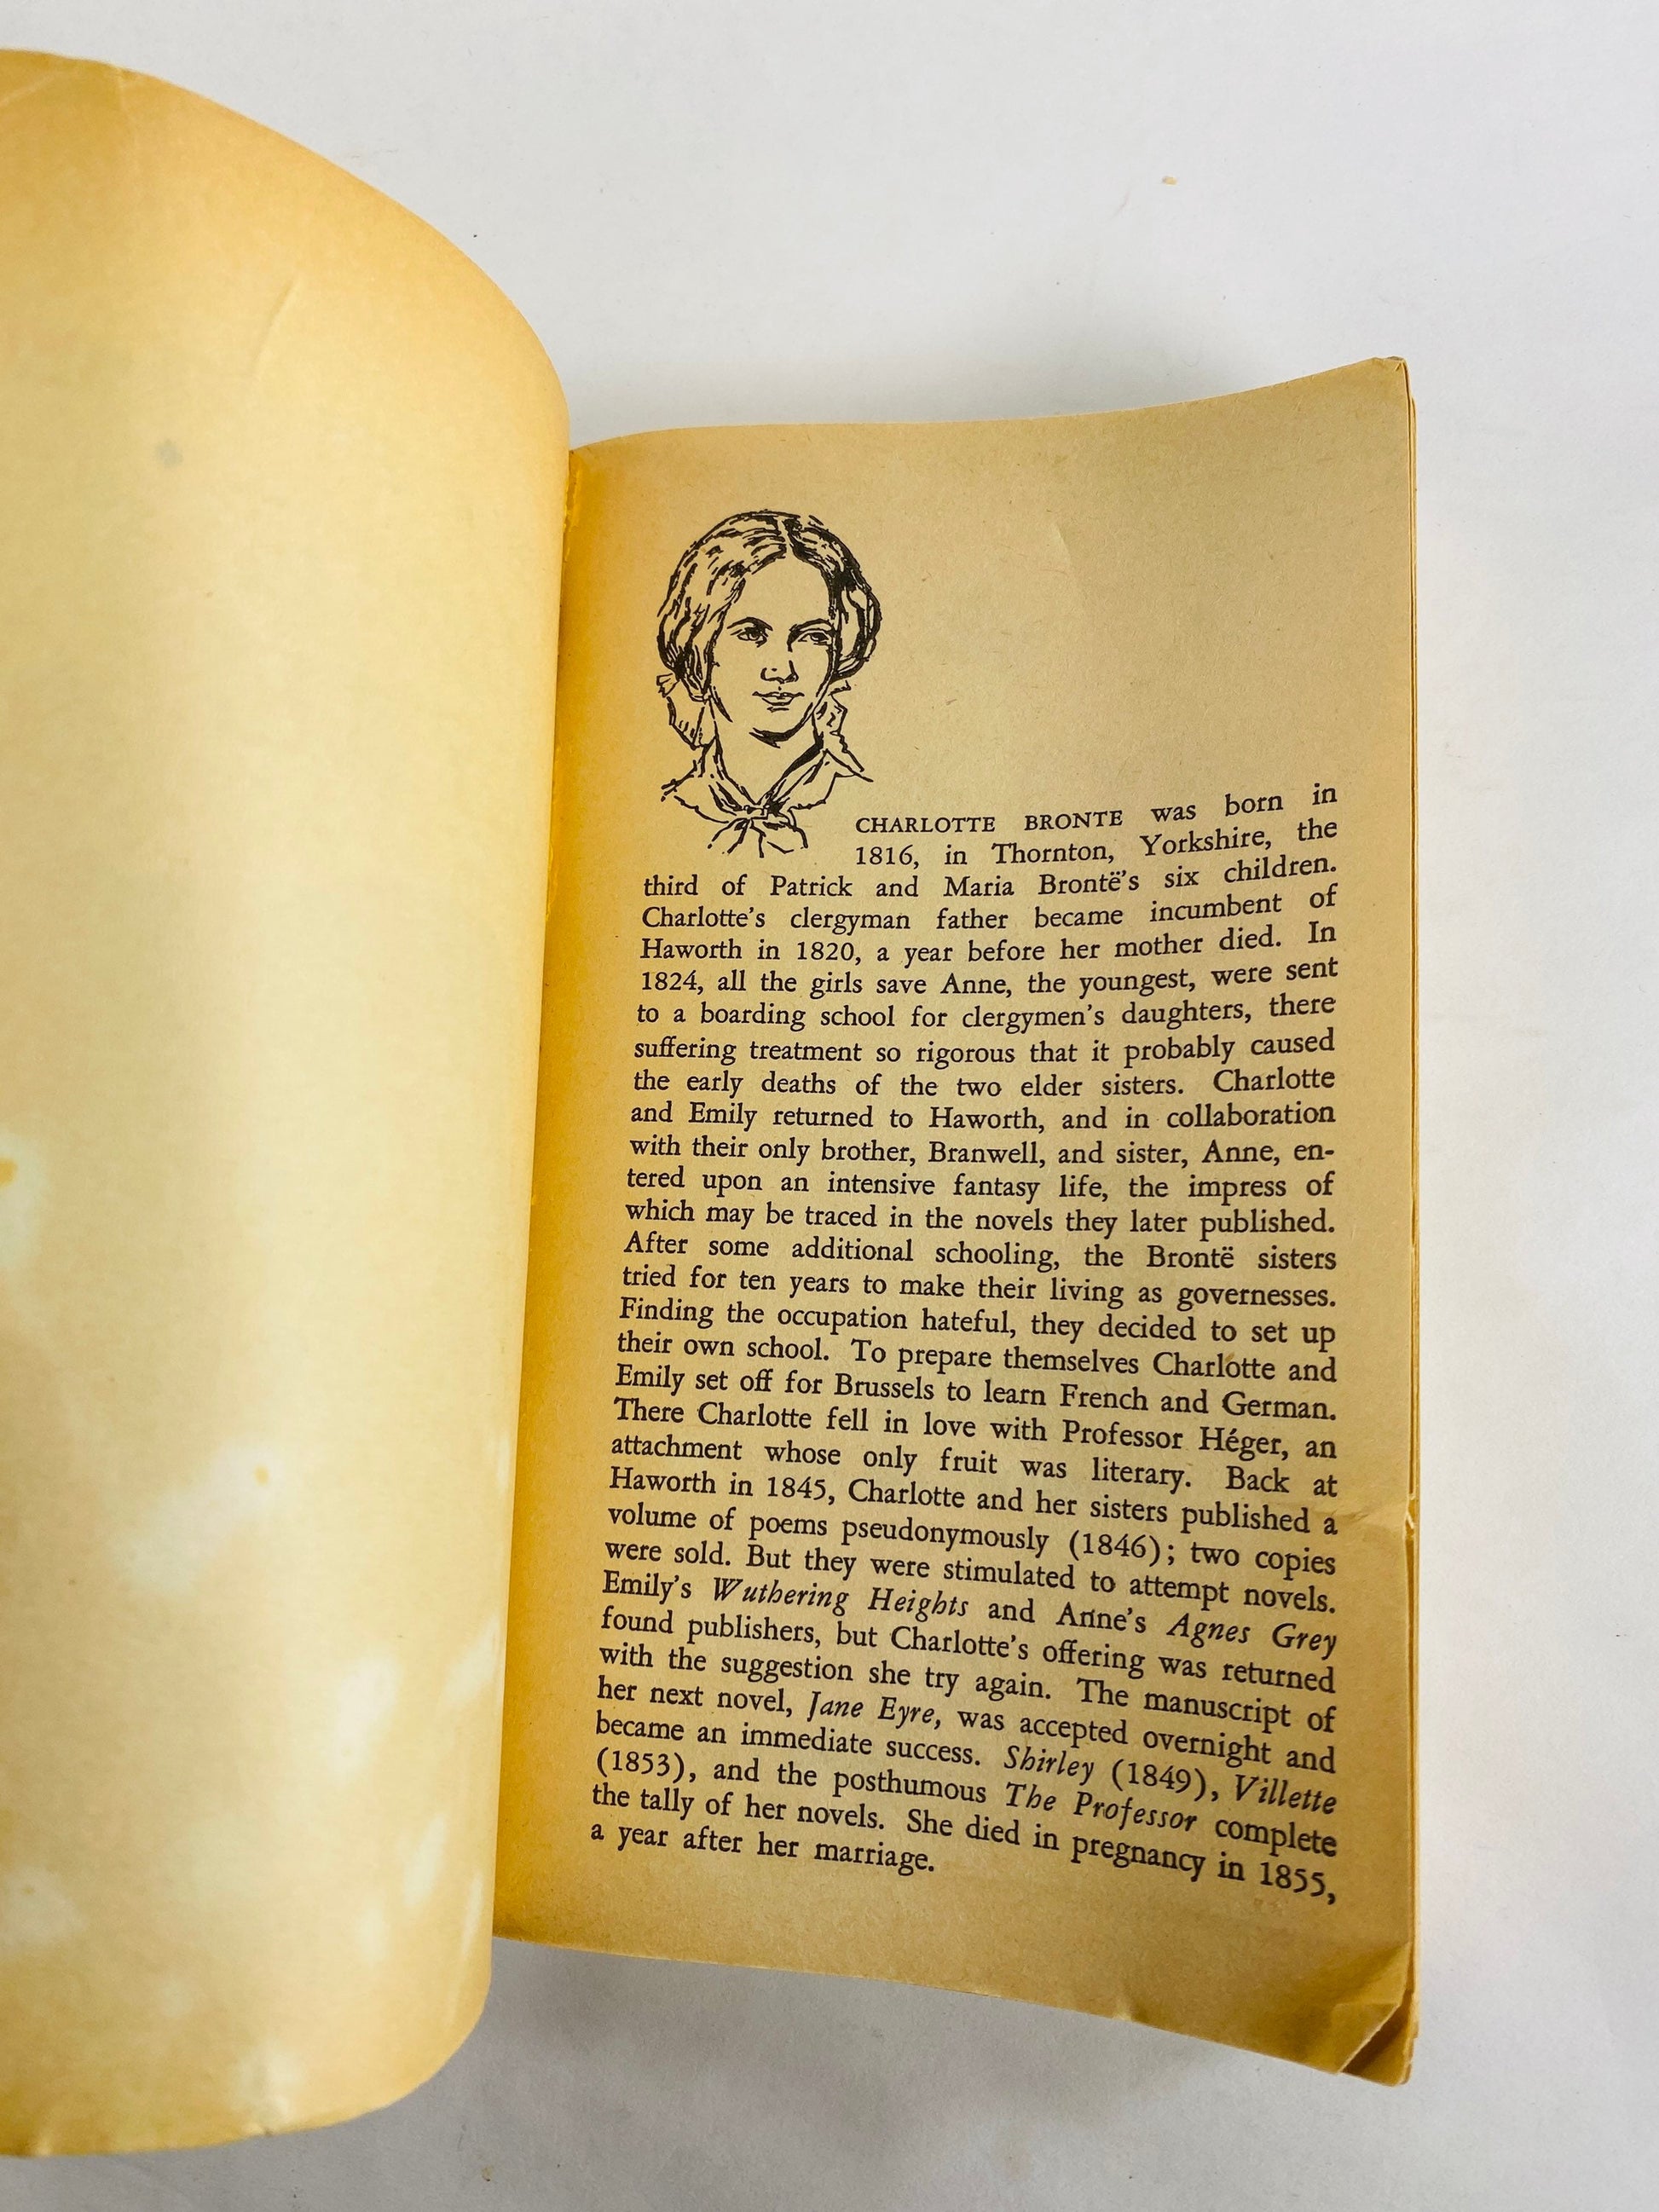 CHARLOTTE BRONTE was born in
1816, in Thornton, Yorkshire, the
third of Patrick and Maria Brontë's six children.
Charlotte's clergyman father became incumbent of
Haworth in 1820, a year before her mother died. In
1824, all the girls save Anne, the youngest, were sent
to a boarding school for clergymen's daughters, there
suffering treatment so rigorous that it probably caused
the early deaths of the two elder sisters. Charlotte
and Emily returned to Haworth, and in collaboration
with their only brother, Branwell, and sister, Anne, en-
tered upon an intensive fantasy life, the impress of
which may be traced in the novels they later published.
After some additional schooling, the Brontë sisters
tried for ten years to make their living as governesses.
Finding the occupation hateful, they decided to set up
their own school. To prepare themselves Charlotte and
Emily set off for Brussels to learn French and German.
There Charlotte fell in love with Professor Héger, an
attachment whose only fruit was literary. Back at
Haworth in 1845, Charlotte and her sisters published a
volume of poems pseudonymously (1846); two copies
were sold. But they were stimulated to attempt novels.
Emily's Wuthering Heights and Anne's Agnes Grey
found publishers, but Charlotte's offering was returned
with the suggestion she try again. The manuscript of
her next novel, Jane Eyre, was accepted overnight and
became an immediate success. Shirley (1849), Villette
(1853), and the posthumous The Professor complete
the tally of her novels. She died in pregnancy in 1855,
a year after her marriage.